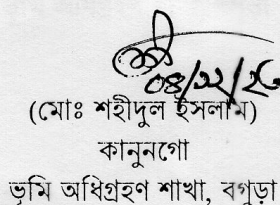 ০৪/১২/২৩
(মোঃ শহীদুল ইসলাম)
কানুনগো
ভূমি অধিগ্রহণ শাখা, বগুড়া